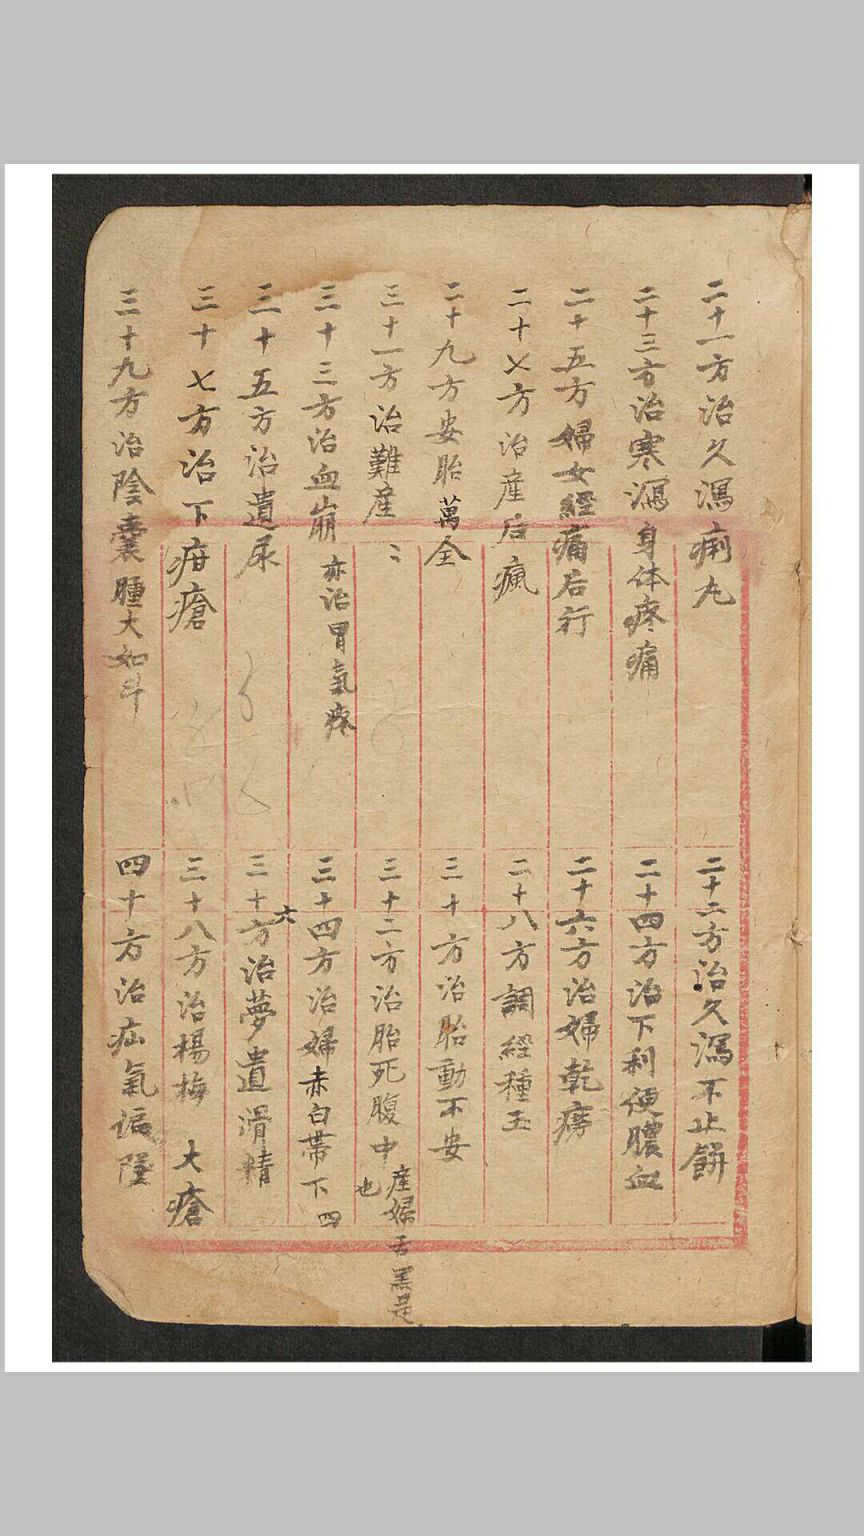 二十一方治久瀉痢丸
二十二方治久瀉不止餅
二十三方治寒瀉身体疼痛
二十四方治下利便膿血
二十五方婦女經痛后行
二十六方治婦乾癆
二十七方治産后瘋
二十八方調經種玉
二十九方安胎萬全
三十方治胎動不安
三十一方治難産
三十二方治胎死腹中 産婦舌黑是也
三十三方治血崩 亦治胃氣疼
三十四方治婦赤白帶下四
三十五方治遺尿
三十六方治夢遺滑精
三十七方治下疳瘡
三十八方治楊梅 大瘡
三十九方治陰囊腫大如斗
四十方治疝氣偏墜